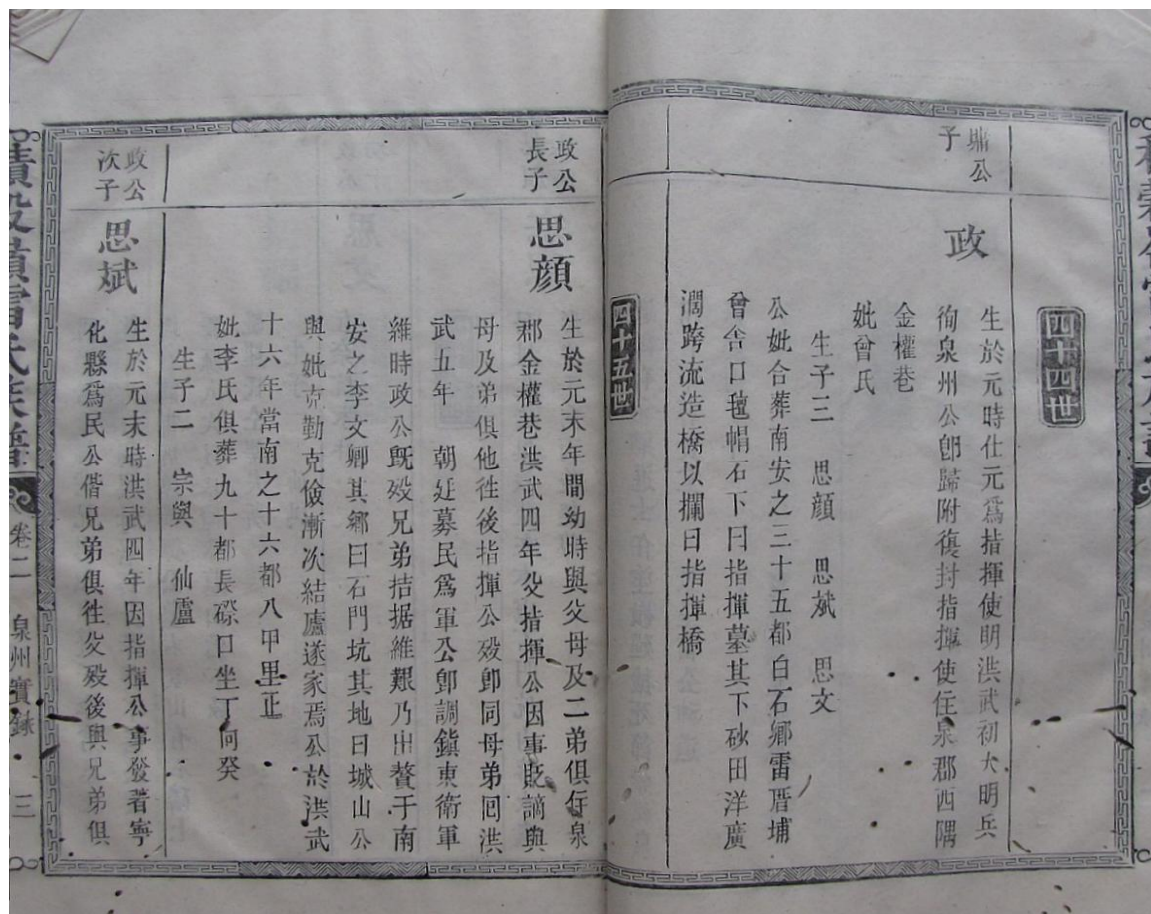 四十四世
鼎公
子
政
生於元時仕元為指揮使明洪武初大明兵
徇泉州公卽歸附復封指揮使住泉郡西隅
金權巷
妣曾氏
生子三 思顔 思斌 思文
公妣合葬南安之三十五都白石鄉雷厝埔
曾舍口氊帽石下曰指揮墓其下砂田洋廣
濶跨流造橋以攔曰指揮橋
四十五世
政公
長子
思顔
生於元末年間幼時與父母及二弟俱住泉
郡金權巷洪武四年父指揮公因事貶謫與
母及弟俱他徃後指揮公殁卽同母弟囘洪
武五年 朝廷募民為軍公卽調鎭東衛軍
維時政公旣殁兄弟拮据維艱乃出贅于南
安之李文卿其鄉曰石門坑其地曰城山公
與妣克勤克儉漸次結廬遂家焉公於洪武
十六年當南之十六都八甲里正
妣李氏俱葬九十都長磜口坐丁向癸
生子二 宗與 仙廬
政公
次子
思斌
生於元末時洪武四年因指揮公事發著寧
化縣為民公偕兄弟俱徃父殁後與兄弟俱
卷二 泉州實録 三